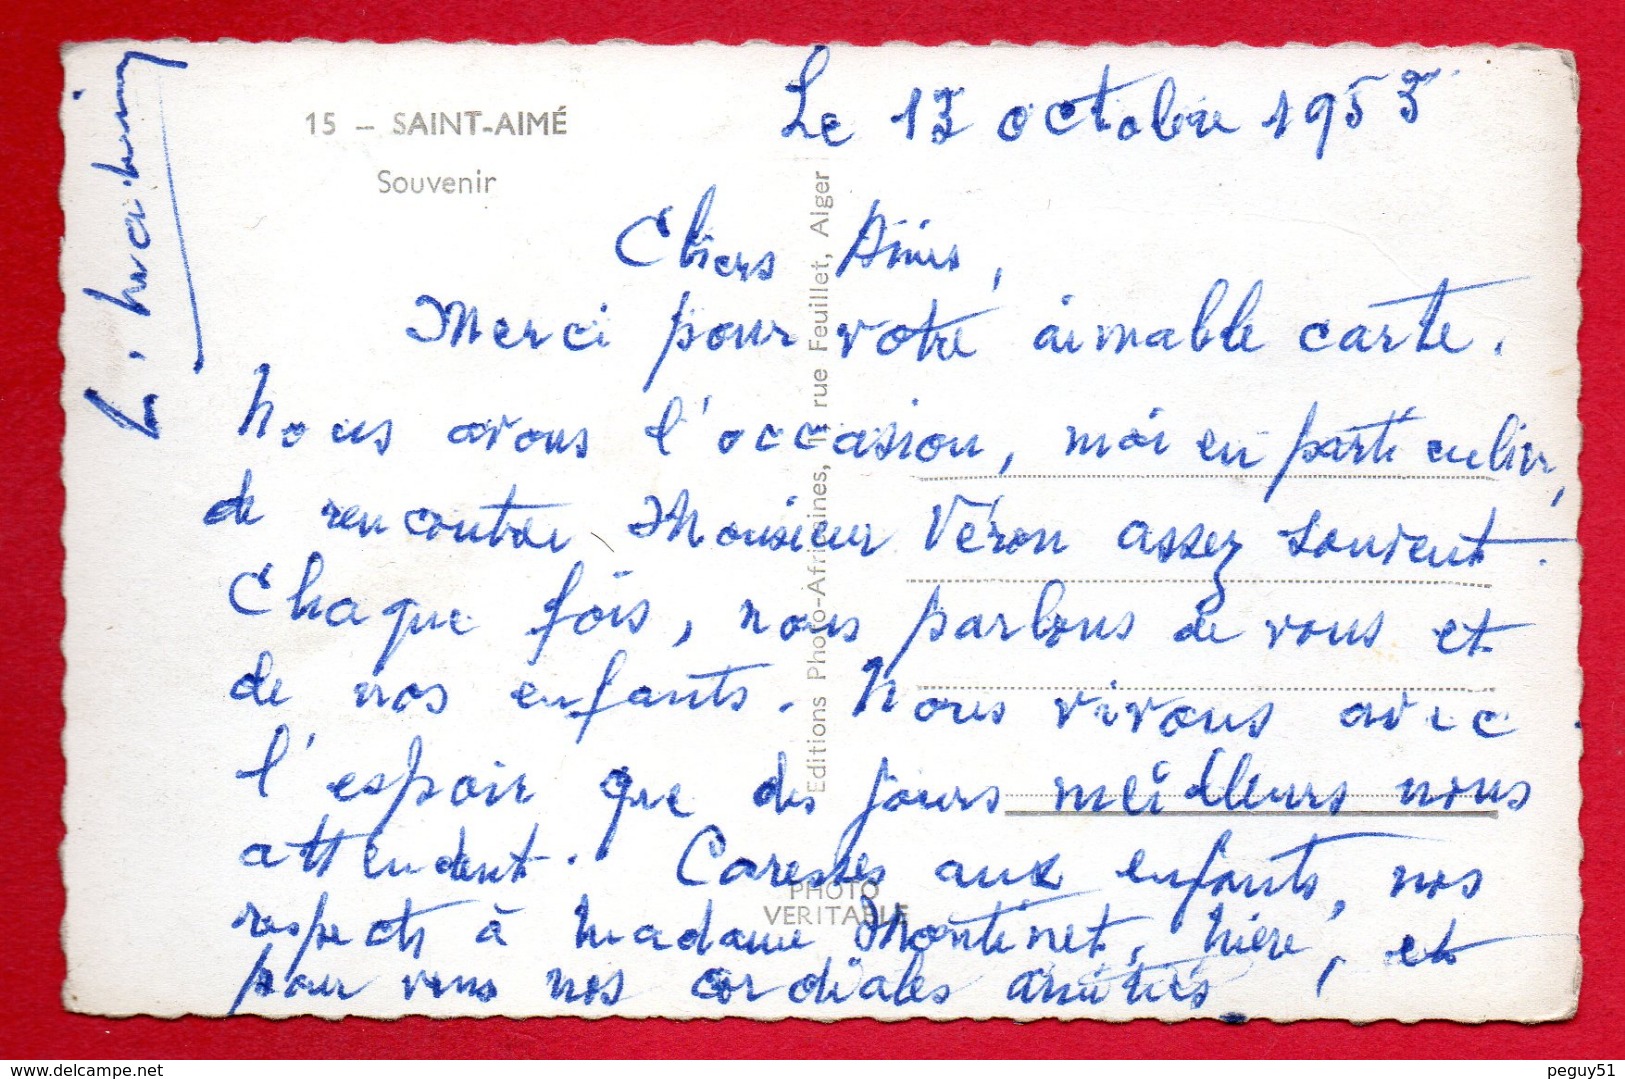 15 – SAINT-AIMÉ
Souvenir
Le 13 octobre 1953
Chers Amis,
Merci pour votre aimable carte.
Nous avons l'occasion, moi en particulier,
de rencontrer Monsieur Véron assez souvent.
Chaque fois, nous parlons de vous et
de nos enfants. Nous vivons avec
l'espoir que des jours meilleurs nous
attendent. Caresses aux enfants, nos
respects à Madame Montinet, Mère, et
pour vous nos cordiales amitiés
Editions Photo-Africaines, rue Feuillet, Alger
PHOTO
VERITABLE
peguy51
delcampe.net